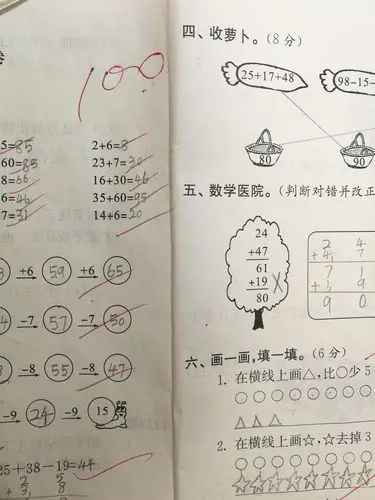 100
5=85
60=85
8=66
6=46
7=31
2+6=8
23+7=30
16+30=46
35+60=95
14+6=20
3 +6 59 +6 65
4 -7 57 -7 50
3 -8 55 -8 47
-9 24 -9 15
25+38-19=44
四、收萝卜。(8分)
25+17+48
98-15-
80
90
五、数学医院。(判断对错并改正
24
+47
61
+19
80
×
2 4
+4 7
7 1
+1 9
9 0
六、画一画,填一填。(6分)
1. 在横线上画△,比○少5
○○○○○○○○
△△△
2. 在横线上画☆,☆去掉3
○○○○○○○○
☆☆☆☆☆☆☆